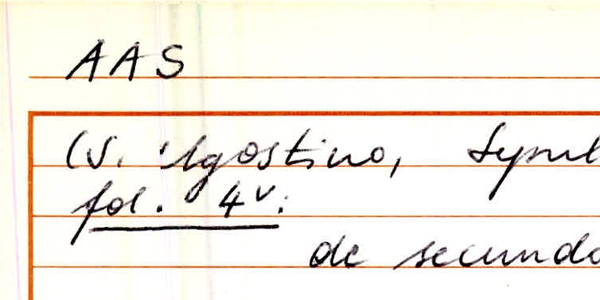 AAS
(S. Agostino,
fol. 4v.
de secundo